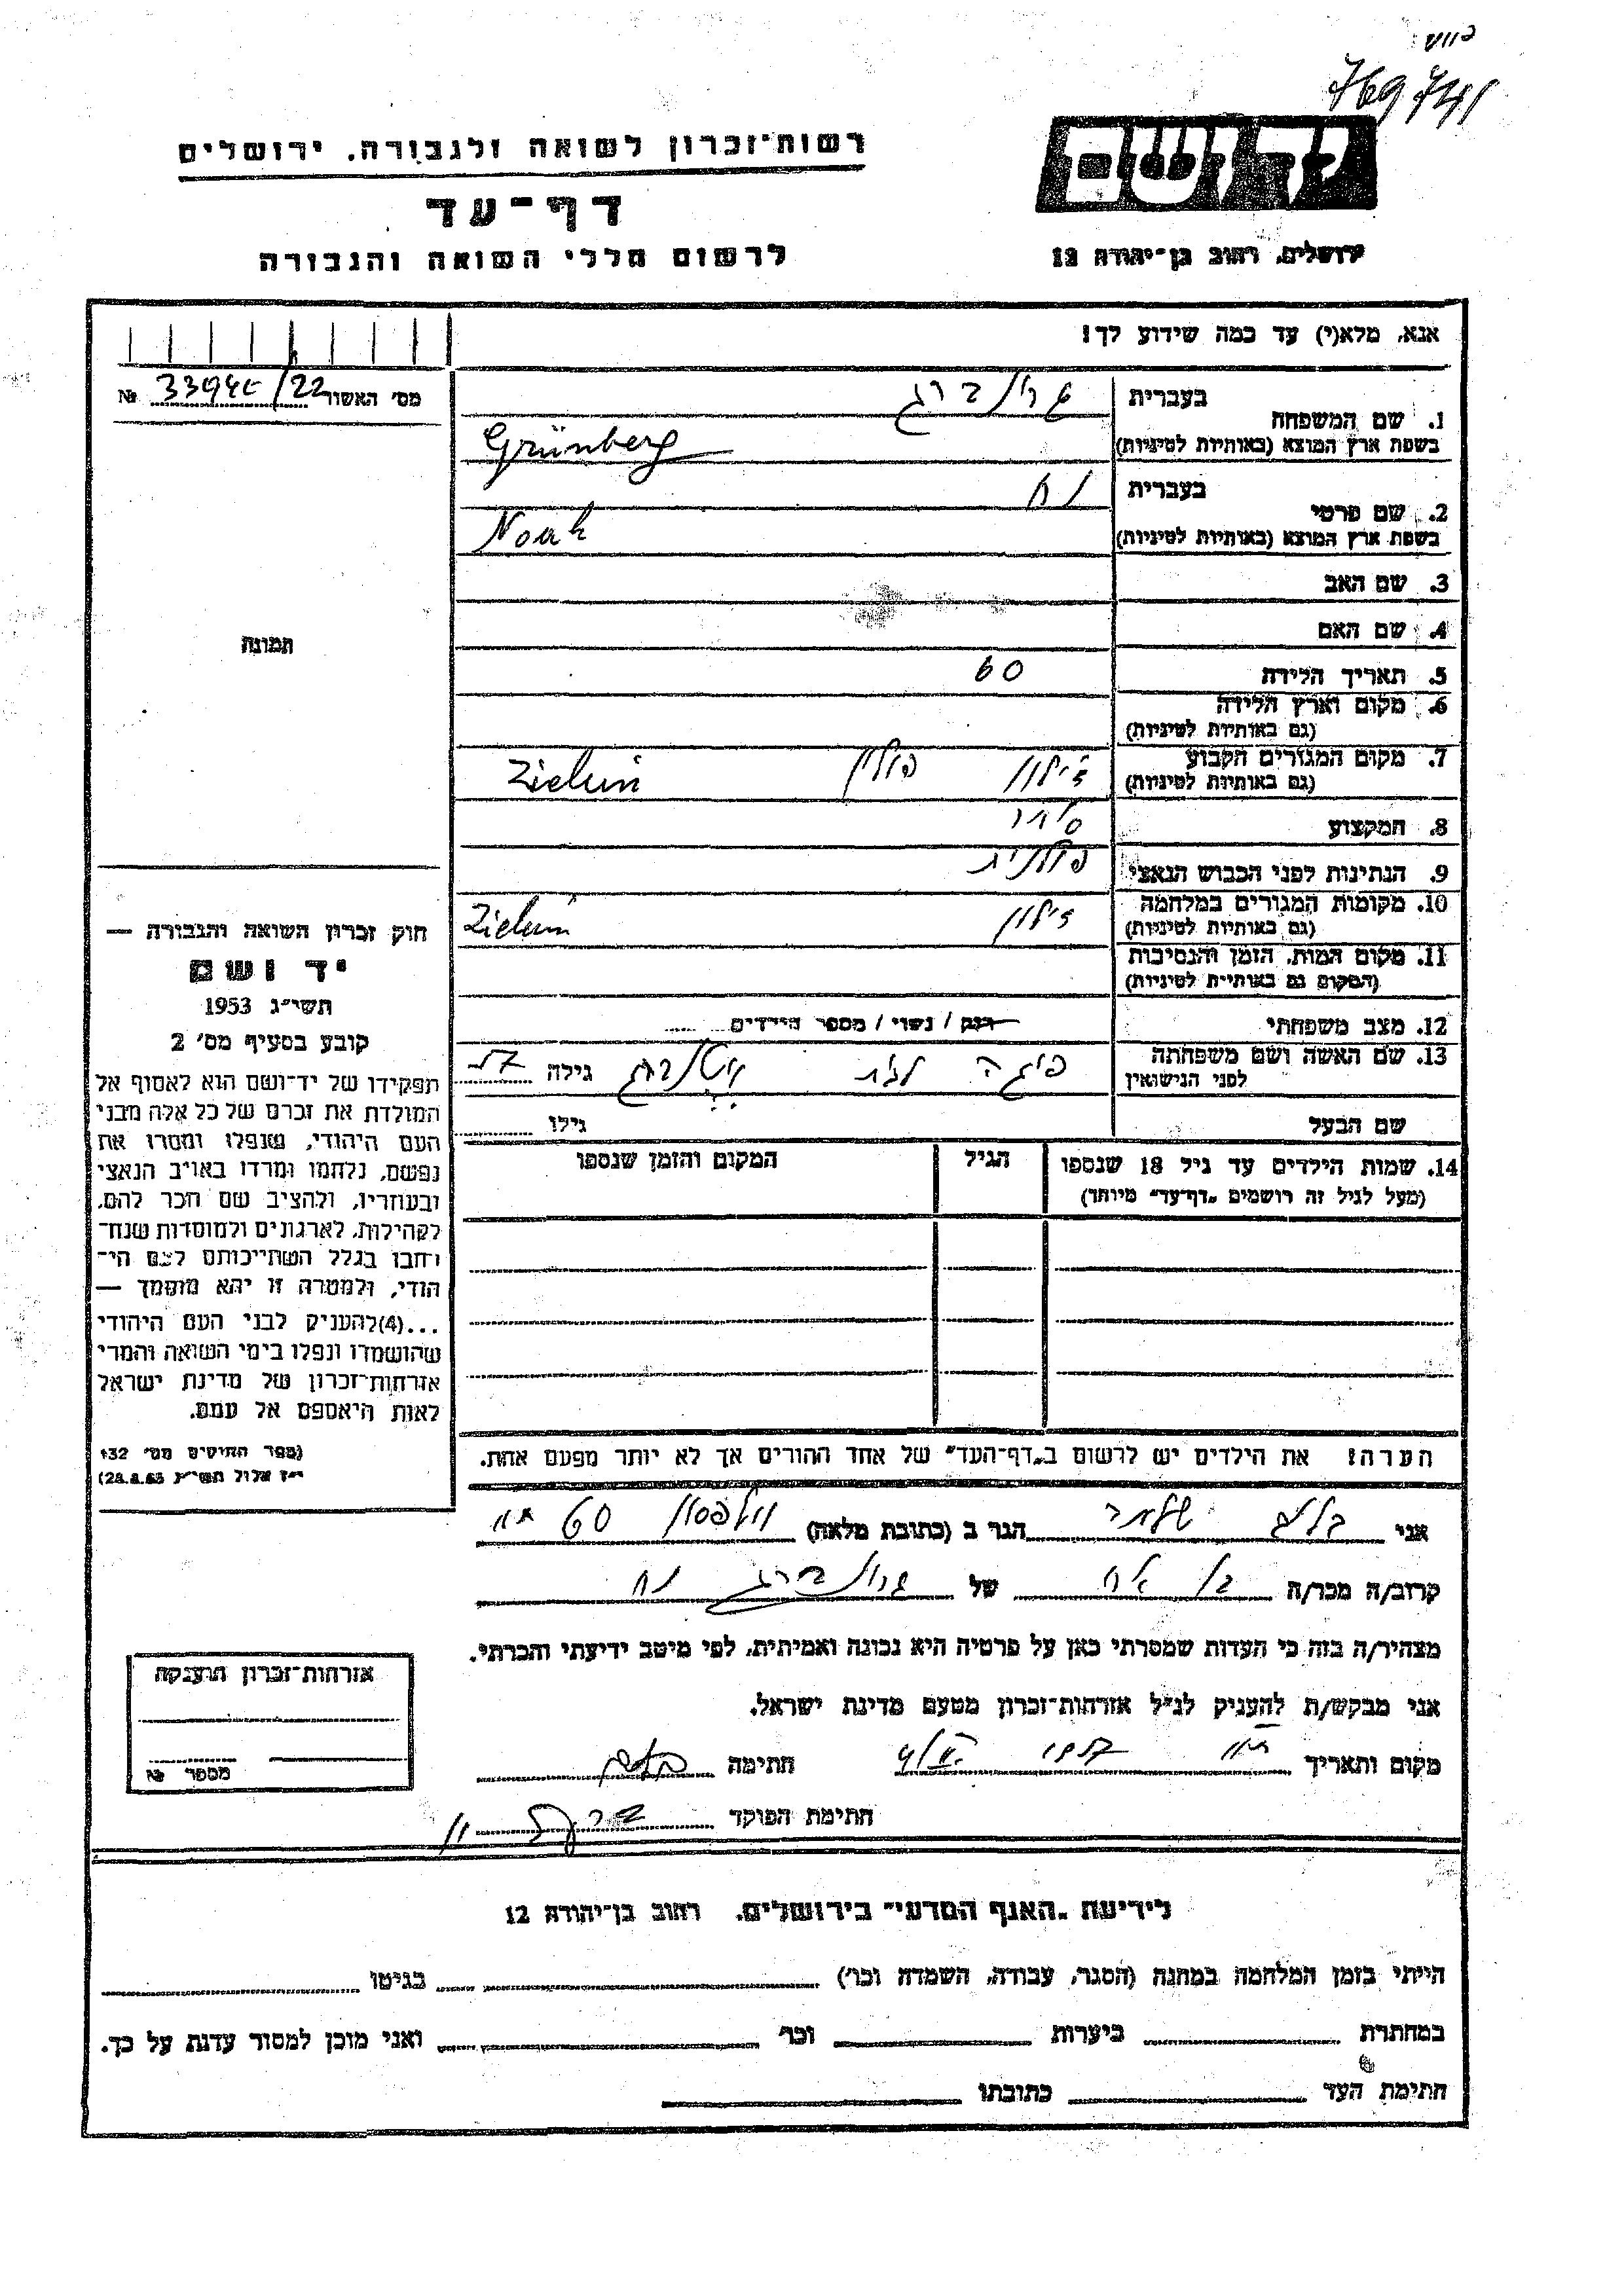 769741
רשות־זכרון לשואה ולגבורה. ירושלים
דף־עד
לרשום חללי השואה והגבורה
יד ושם
ירושלים, רחוב בן־יהודה 12
אנא, מלא(י) עד כמה שידוע לך!
מס׳ האשור 33945/22 №
1. שם המשפחה
בעברית גרינברג
בשפת ארץ המוצא (באותיות לטיניות) Grünberg
2. שם פרטי
בעברית נח
בשפת ארץ המוצא (באותיות לטיניות) Noah
3. שם האב
4. שם האם
תמונה
5. תאריך הלידה 60
6. מקום וארץ הלידה
(גם באותיות לטיניות)
7. מקום המגורים הקבוע
(גם באותיות לטיניות) ז׳ילון פולין Zielun
8. המקצוע סוחר
9. הנתינות לפני הכבוש הנאצי פולנית
10. מקומות המגורים במלחמה
(גם באותיות לטיניות) ז׳ילון Zielun
11. מקום המות, הזמן והנסיבות
(המקום גם באותיות לטיניות)
12. מצב משפחתי רווק / נשוי / מספר הילדים
13. שם האשה ושם משפחתה
לפני הנישואין פיגה לבית גילה
שם הבעל גילו
14. שמות הילדים עד גיל 18 שנספו
(מעל לגיל זה רושמים „דף־עד״ מיוחד)
הגיל
המקום והזמן שנספו
הערה! את הילדים יש לרשום ב„דף־העד״ של אחד ההורים אך לא יותר מפעם אחת.
חוק זכרון השואה והגבורה —
יד ושם
תשי״ג 1953
קובע בסעיף מס׳ 2
תפקידו של יד־ושם הוא לאסוף אל
המולדת את זכרם של כל אלה מבני
העם היהודי, שנפלו ומסרו את
נפשם, נלחמו ומרדו באויב הנאצי
ובעוזריו, ולהציב שם וזכר להם,
לקהילות, לארגונים ולמוסדות שנח־
רחבו בגלל השתייכותם לעם הי־
הודי, ולמטרה זו יהא מוסמך —
...(4)להעניק לבני העם היהודי
שהושמדו ונפלו בימי השואה והמרי
אזרחות־זכרון של מדינת ישראל
לאות היאספם אל עמם.
(ספר החוקים מס׳ 132
י״ז אלול תשי״ג 28.8.53)
אני שלמה הגר ב (כתובת מלאה) וולפסון 60 ת״א
קרוב/ה מכר/ה בן אח של גרינברג נח
מצהיר/ה בזה כי העדות שמסרתי כאן על פרטיה היא נכונה ואמיתית, לפי מיטב ידיעתי והכרתי.
אני מבקש/ת להעניק לנ״ל אזרחות־זכרון מטעם מדינת ישראל.
מקום ותאריך ת״א חתימה
חתימת הפוקד
אזרחות־זכרון הוענקה
מספר №
לידיעת „האגף המדעי״ בירושלים, רחוב בן־יהודה 12
הייתי בזמן המלחמה במחנה (הסגר, עבודה, השמדה וכו׳) בגיטו
במחתרת ביערות וכו׳ ואני מוכן למסור עדות על כך.
חתימת העד כתובתו